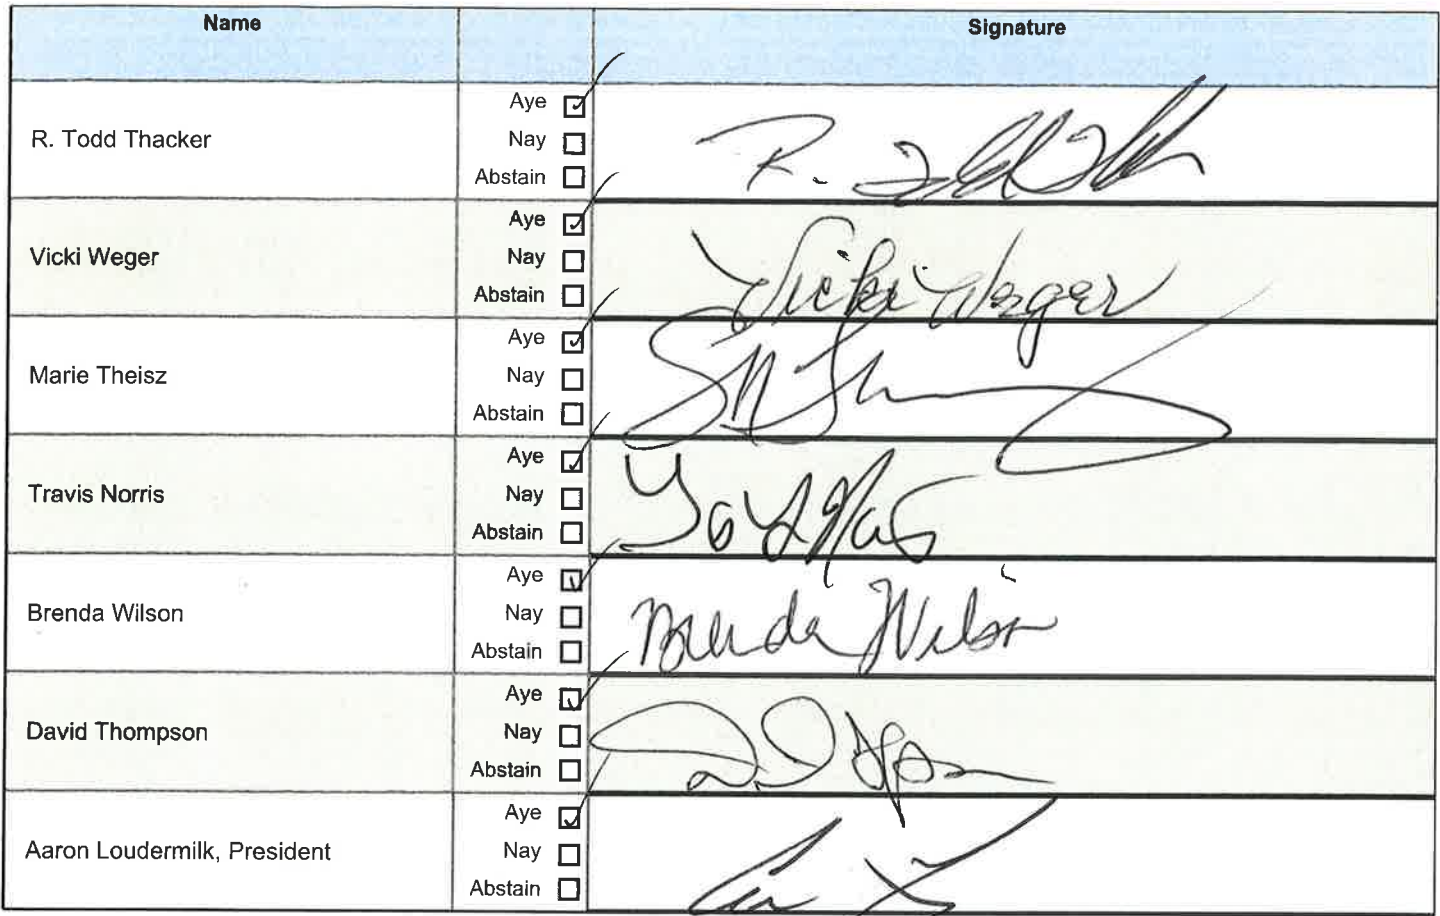 Name Signature
R. Todd Thacker
Aye ☑
Nay ☐
Abstain ☐
R.
Vicki Weger
Aye ☑
Nay ☐
Abstain ☐
Vicki Weger
Marie Theisz
Aye ☑
Nay ☐
Abstain ☐
Travis Norris
Aye ☑
Nay ☐
Abstain ☐
Brenda Wilson
Aye ☑
Nay ☐
Abstain ☐
Brenda Wilson
David Thompson
Aye ☑
Nay ☐
Abstain ☐
Aaron Loudermilk, President
Aye ☑
Nay ☐
Abstain ☐